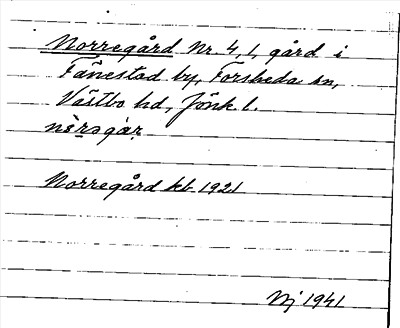 Norregård Nr. 4, 1, gård i
Tånestad by, Forsheda sn,
Västbo hd, Jönk. l.
nè̱ragar
Norregård kb 1921
Nj 1941